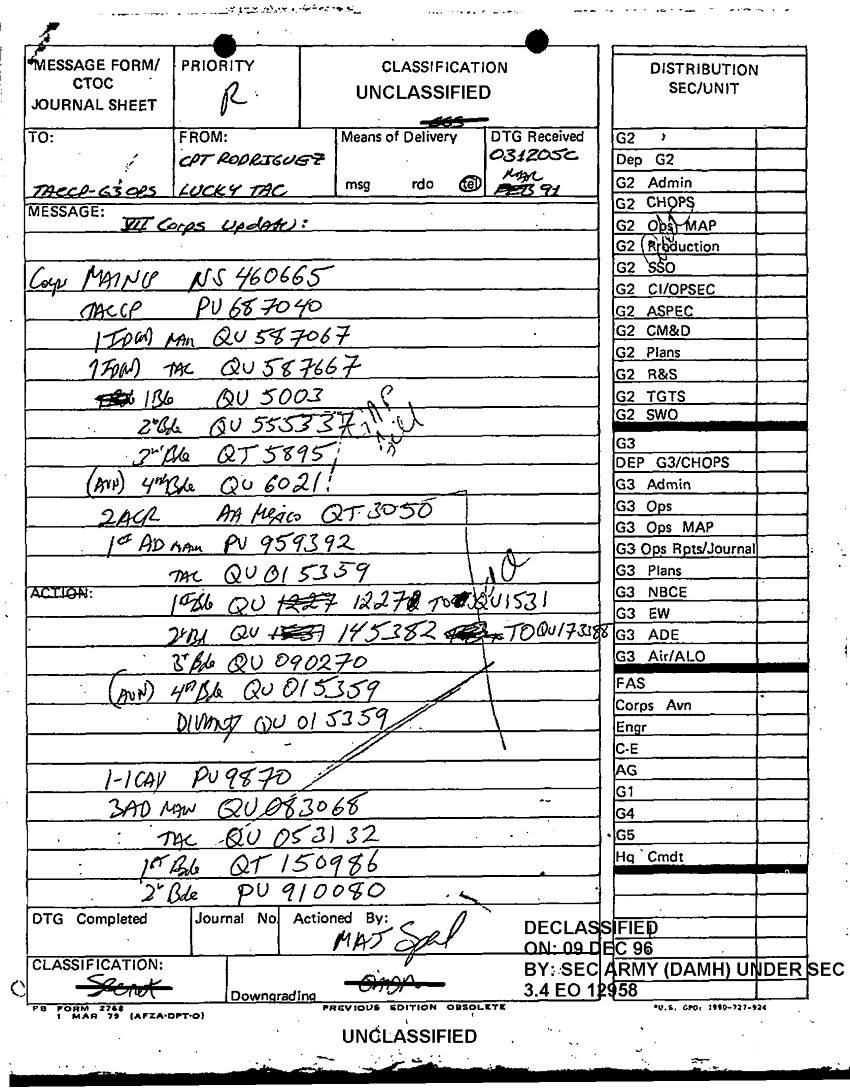 MESSAGE FORM/
CTOC
JOURNAL SHEET
PRIORITY
R
CLASSIFICATION
UNCLASSIFIED
DISTRIBUTION
SEC/UNIT
TO:
TACCP-G3 OPS
FROM:
CPT RODRIGUEZ
LUCKY TAC
Means of Delivery
msg rdo tel
DTG Received
031205C
MAR
FEB 91
MESSAGE:
VII Corps Update:
Corps MAIN CP NS 460665
TACCP PU 687040
1 ID(M) MAN QU 587067
1 ID(M) TAC QU 587667
1 Bde QU 5003
2nd Bde QU 555337
3rd Bde QT 5895
(AVN) 4th Bde QU 6021
2ACR AA Mexico QT 3050
1st AD MAN PV 959392
TAC QU 015359
ACTION:
1st Bde QU 1227 12272 TO QU1531
2nd Bde QU 145382 TO QU 173388
3rd Bde QU 090270
(AVN) 4th Bde QU 015359
DIVARTY QU 015359
1-1 CAV PU 9870
3AD MAN QU 083068
TAC QU 053132
1st Bde QT 150986
2nd Bde PU 910080
G2
Dep G2
G2 Admin
G2 CHOPS
G2 Ops MAP
G2 Production
G2 SSO
G2 CI/OPSEC
G2 ASPEC
G2 CM&D
G2 Plans
G2 R&S
G2 TGTS
G2 SWO
G3
DEP G3/CHOPS
G3 Admin
G3 Ops
G3 Ops MAP
G3 Ops Rpts/Journal
G3 Plans
G3 NBCE
G3 EW
G3 ADE
G3 Air/ALO
FAS
Corps Avn
Engr
C-E
AG
G1
G4
G5
Hq Cmdt
DTG Completed
Journal No.
Actioned By:
MAJ
CLASSIFICATION:
Secret
Downgrading
DECLASSIFIED
ON: 09 DEC 96
BY: SEC ARMY (DAMH) UNDER SEC
3.4 EO 12958
FB FORM 2768
1 MAR 79 (AFZA-DPT-O)
PREVIOUS EDITION OBSOLETE
*U.S. GPO: 1990-727-924
UNCLASSIFIED